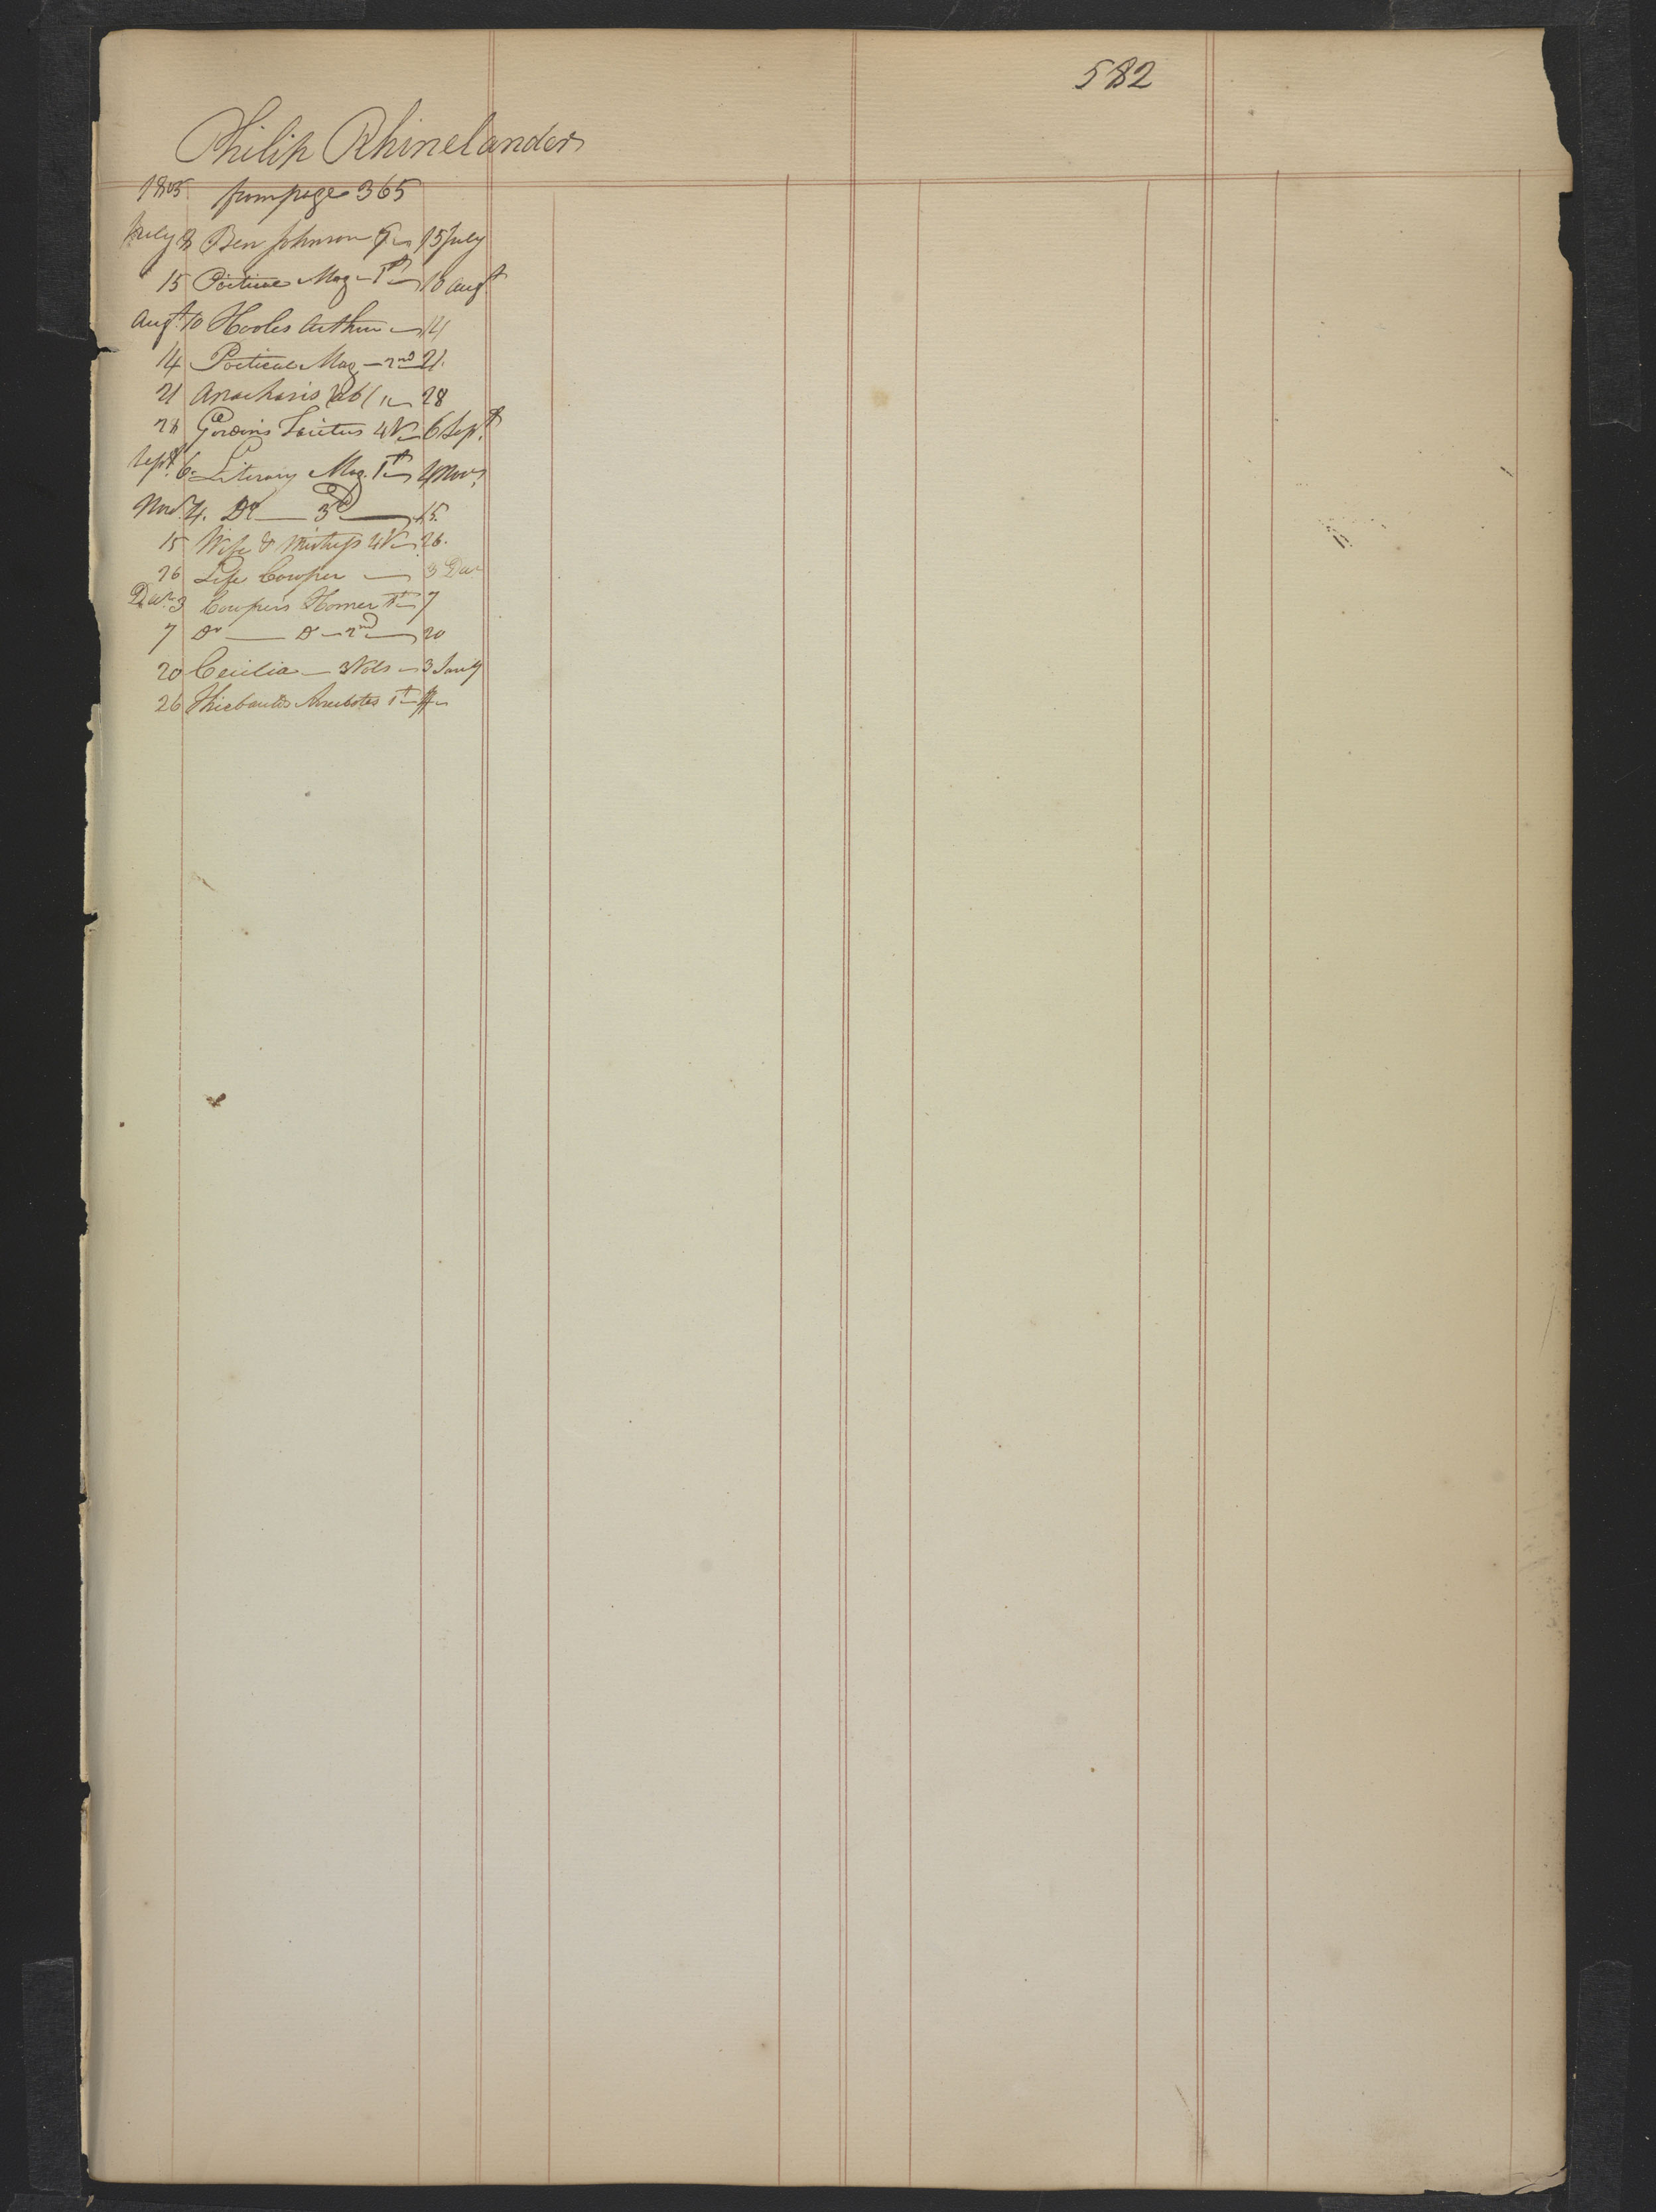 582
Philip Rhinelander
1805 from page 365
July 8 Ben Johnson 15 July
15 Poetical Mag — 1st 10 Augt
Augt 10 Hooles Arthur — 14
14 Poetical Mag — 2nd 21.
21 Anacharsis 28
28 Gordons Tacitus 4V 6 Sept
Sept 6 Literary Mag. 1st 4 Nov.
Nov. 4. Do — 3d — 15.
15 Wife & Mistress 4V 26.
26 Life Cowper — 3 Decr
Decr 3 Cowpers Homer 1st 7
7 Do — Do — 2nd — 20
20 Cecilia — 3 Vols — 3 Jany
26 Thiebaults Anecdotes 1st